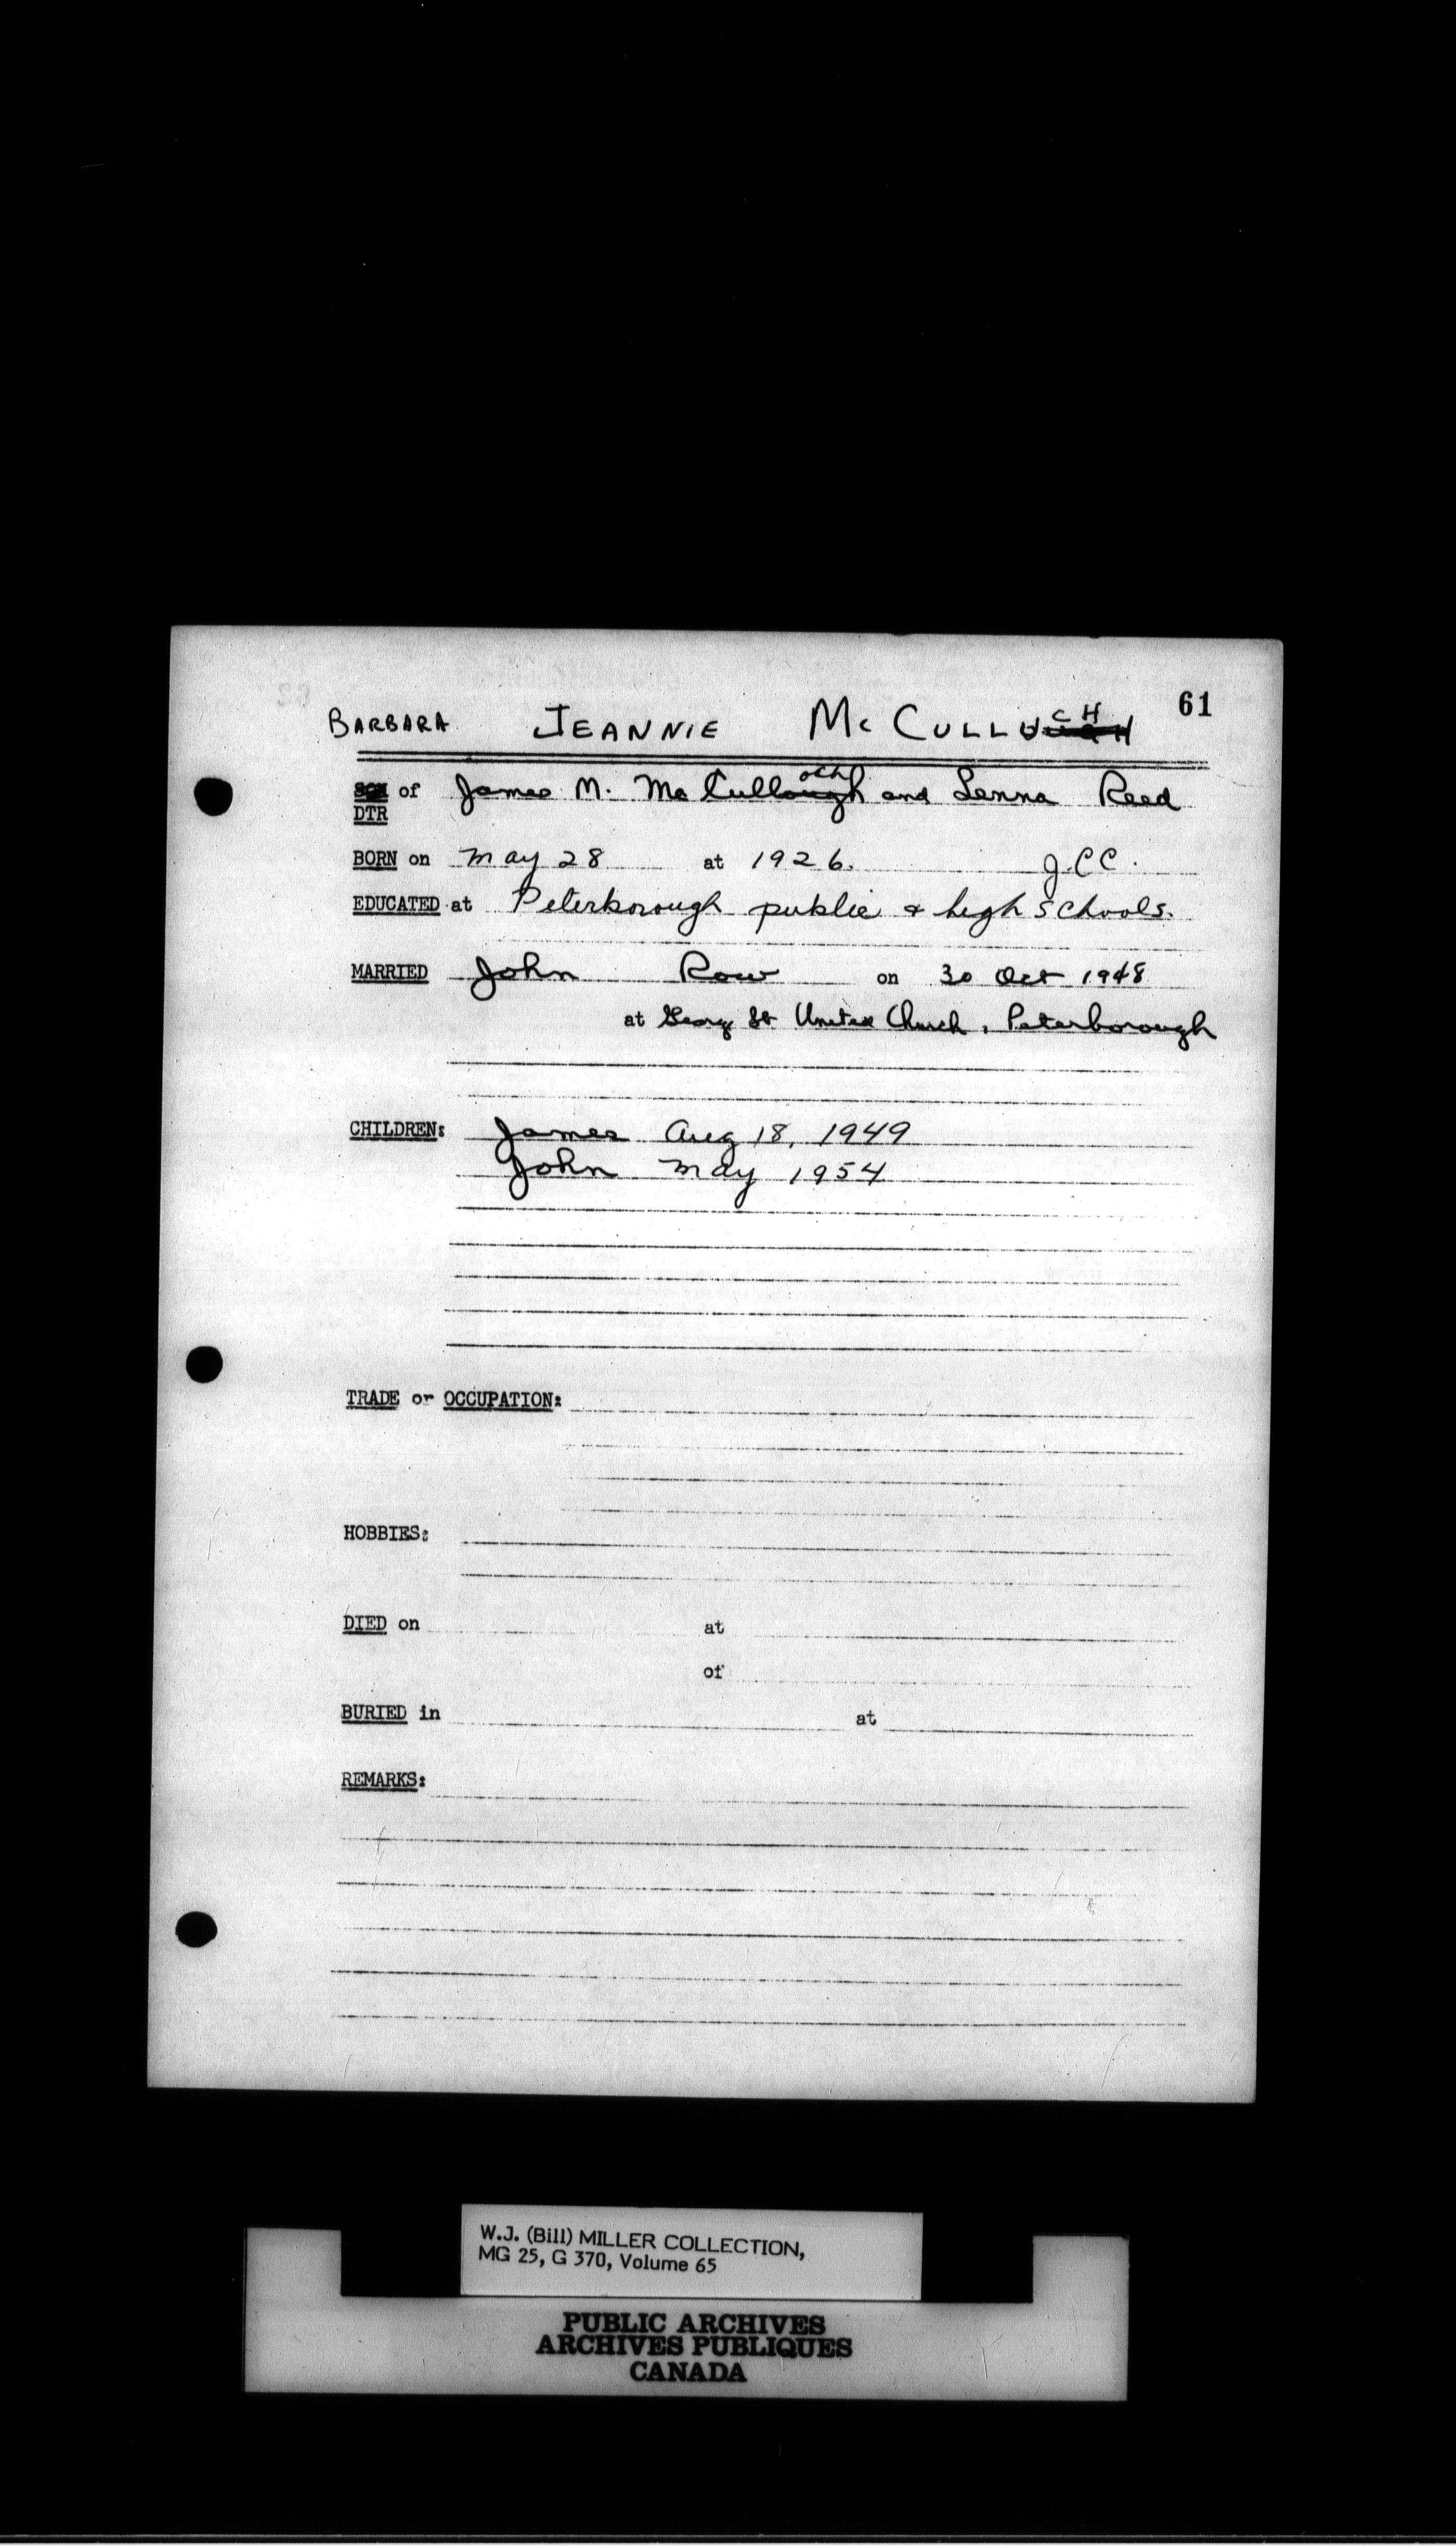 61
BARBARA JEANNIE McCULLOCH
SON of James M. McCulloch and Lenna Reed
DTR
BORN on May 28 at 1926. J.CC.
EDUCATED at Peterborough public & high schools.
MARRIED John Row on 30 Oct 1948
at Georg St United Church, Peterborough
CHILDREN: James Aug 18, 1949
John May 1954
TRADE or OCCUPATION:
HOBBIES:
DIED on at
of
BURIED in at
REMARKS:
W.J. (Bill) MILLER COLLECTION,
MG 25, G 370, Volume 65
PUBLIC ARCHIVES
ARCHIVES PUBLIQUES
CANADA